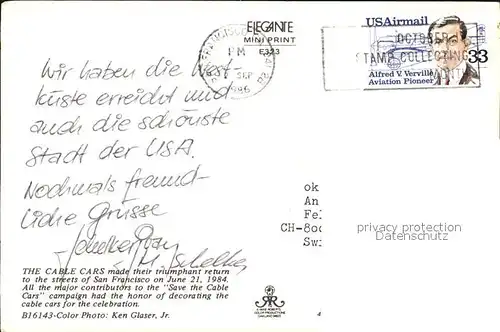 ELEGANTE
MINI PRINT
E323
PM
SEP
USAirmail
OCTOBER
STAMP COLLECTING
33
Alfred V. Verville
Aviation Pioneer
Wir haben die West-
küste erreicht und
auch die schönste
Stadt der USA.
Nochmals freund-
liche Grüsse
ok
An
Fe
CH-800
Swi
privacy protection
Datenschutz
THE CABLE CARS made their triumphant return
to the streets of San Francisco on June 21, 1984.
All the major contributors to the "Save the Cable
Cars" campaign had the honor of decorating the
cable cars for the celebration.
B16143-Color Photo: Ken Glaser, Jr.